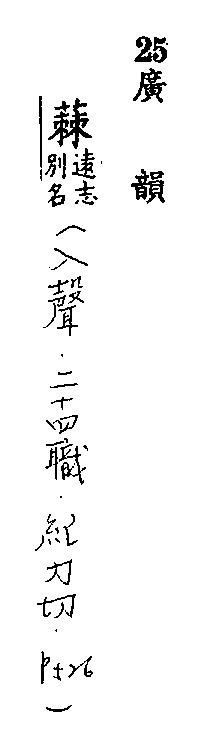 25廣韻
蕀遠志別名(入聲.二十四職.紀力切.P526)